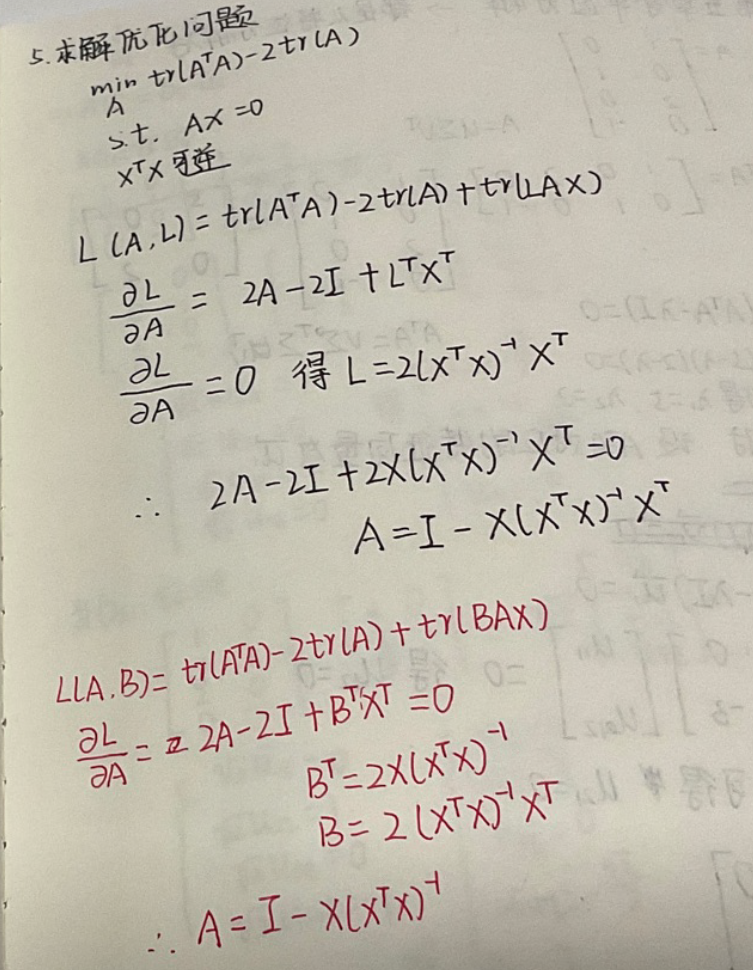 5.求解优化问题
min tr(AᵀA)-2tr(A)
A
s.t. AX=0
XᵀX 可逆
L(A,L)=tr(AᵀA)-2tr(A)+tr(LAX)
∂L/∂A = 2A-2I+LᵀXᵀ
∂L/∂A =0 得 L=2(XᵀX)⁻¹Xᵀ
∴ 2A-2I+2X(XᵀX)⁻¹Xᵀ=0
A=I-X(XᵀX)⁻¹Xᵀ
L(A.B)=tr(AᵀA)-2tr(A)+tr(BAX)
∂L/∂A = 2A-2I+BᵀXᵀ=0
Bᵀ=2X(XᵀX)⁻¹
B=2(XᵀX)⁻¹Xᵀ
∴ A=I-X(XᵀX)⁻¹